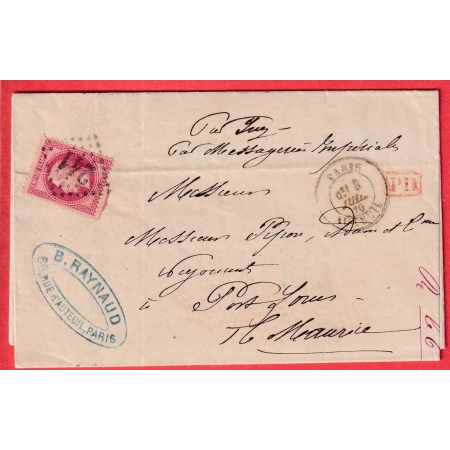 Par Suez
Par Messageries Impériales
Messieurs
Messieurs Pipon, Adam et Cie
Négociants
à Port Louis
Ile Maurice
PARIS
5
JUIL
70
PD
B. RAYNAUD
RUE d'AUTEUIL, PARIS